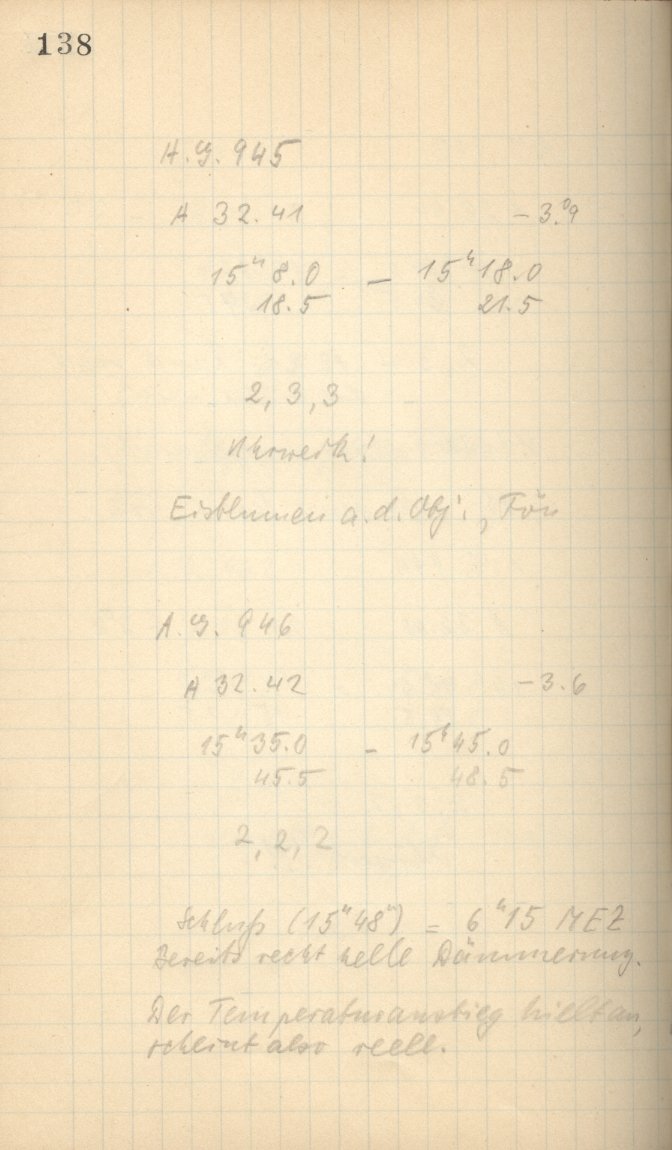 138
A.G. 945
A 32.41 -3.°9
15ʰ 8.0 – 15ʰ18.0
18.5 21.5
2, 3, 3
Uhrwerk!
Eisblumen a.d. Obj., Fön
A.G. 946
A 32.42 -3.6
15ʰ35.0 – 15ʰ45.0
45.5 48.5
2, 2, 2
Schluß (15ʰ48ᵐ) = 6ʰ15 MEZ
Bereits recht helle Dämmerung.
Der Temperaturanstieg hielt an,
scheint also reell.